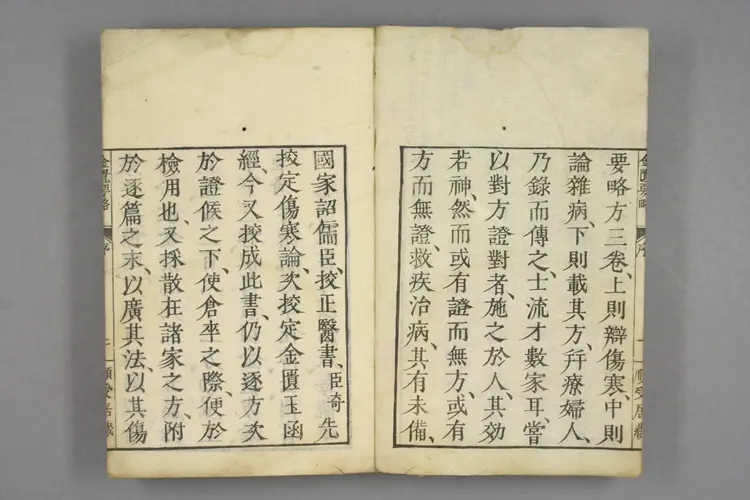 要略方三卷、上則辯傷寒、中則
論雜病、下則載其方、幷療婦人、
乃錄而傳之、士流才數家耳、嘗
以對方證對者、施之於人、其効
若神、然而或有證而無方、或有
方而無證、救疾治病、其有未備、
國家詔儒臣、挍正醫書、臣奇先
挍定傷寒論、次挍定金匱玉函
經、今又挍成此書、仍以逐方次
於證候之下、使倉卒之際、便於
檢用也、又採散在諸家之方、附
於逐篇之末、以廣其法、以其傷
金匱要略
序
二
順受居藏
金匱要略
序
一
順受居藏